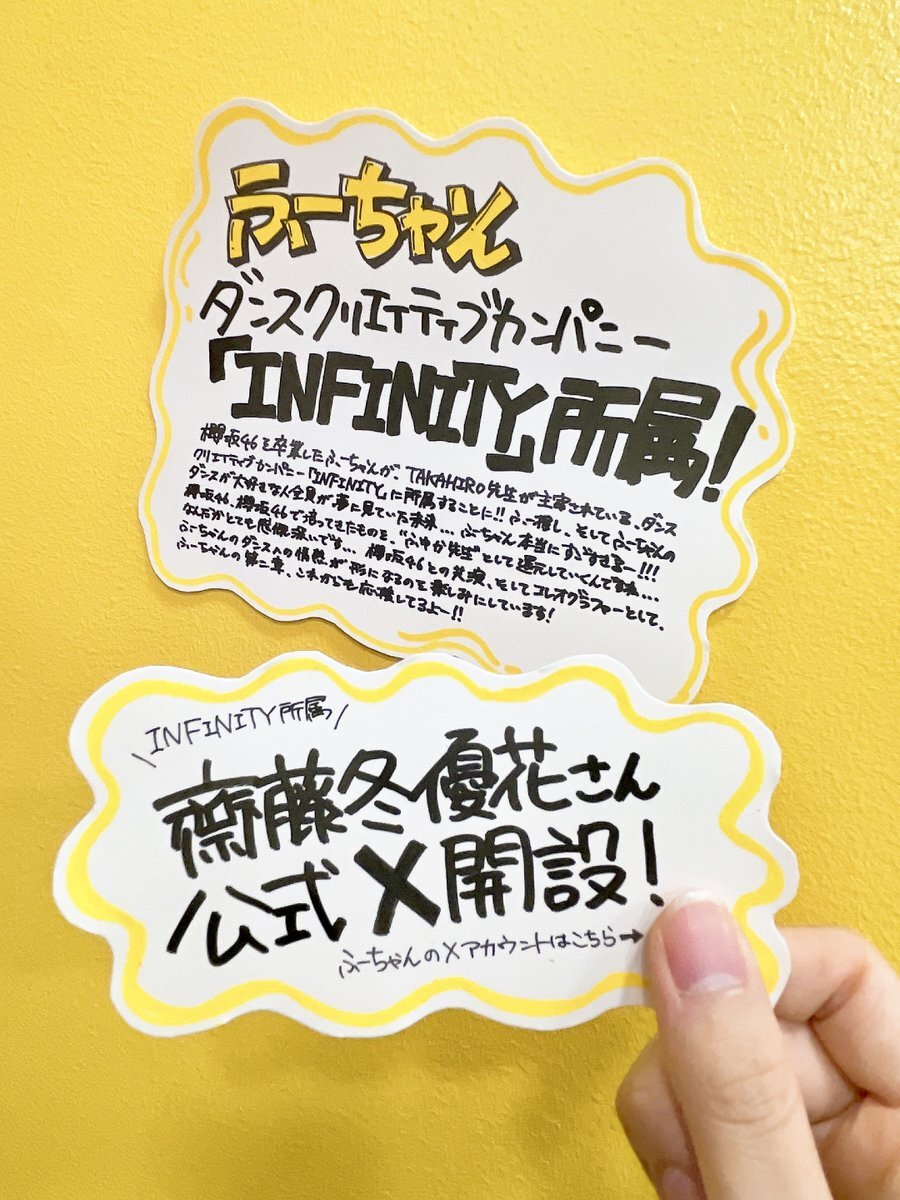 ふーちゃん
ダンスクリエイティブカンパニー
「INFINITY」所属!
欅坂46を卒業したふーちゃんが、TAKAHIRO先生が主宰されている、ダンス
クリエイティブカンパニー「INFINITY」に所属することに!!ふー推し、そしてふーちゃんの
ダンスが大好きな人全員が夢に見ていた未来...ふーちゃん本当にすごすぎるー!!!
欅坂46、櫻坂46で培ってきたものを、"ふゆか先生"として還元していくんですね...
なんだかとても感慨深いです...櫻坂46との共演、そしてコレオグラファーとして、
ふーちゃんのダンスへの情熱が形になるのを楽しみにしています!
ふーちゃんの第二章、これからも応援してるよー!!
\INFINITY所属/
齋藤冬優花さん
公式X開設!
ふーちゃんのXアカウントはこちら→